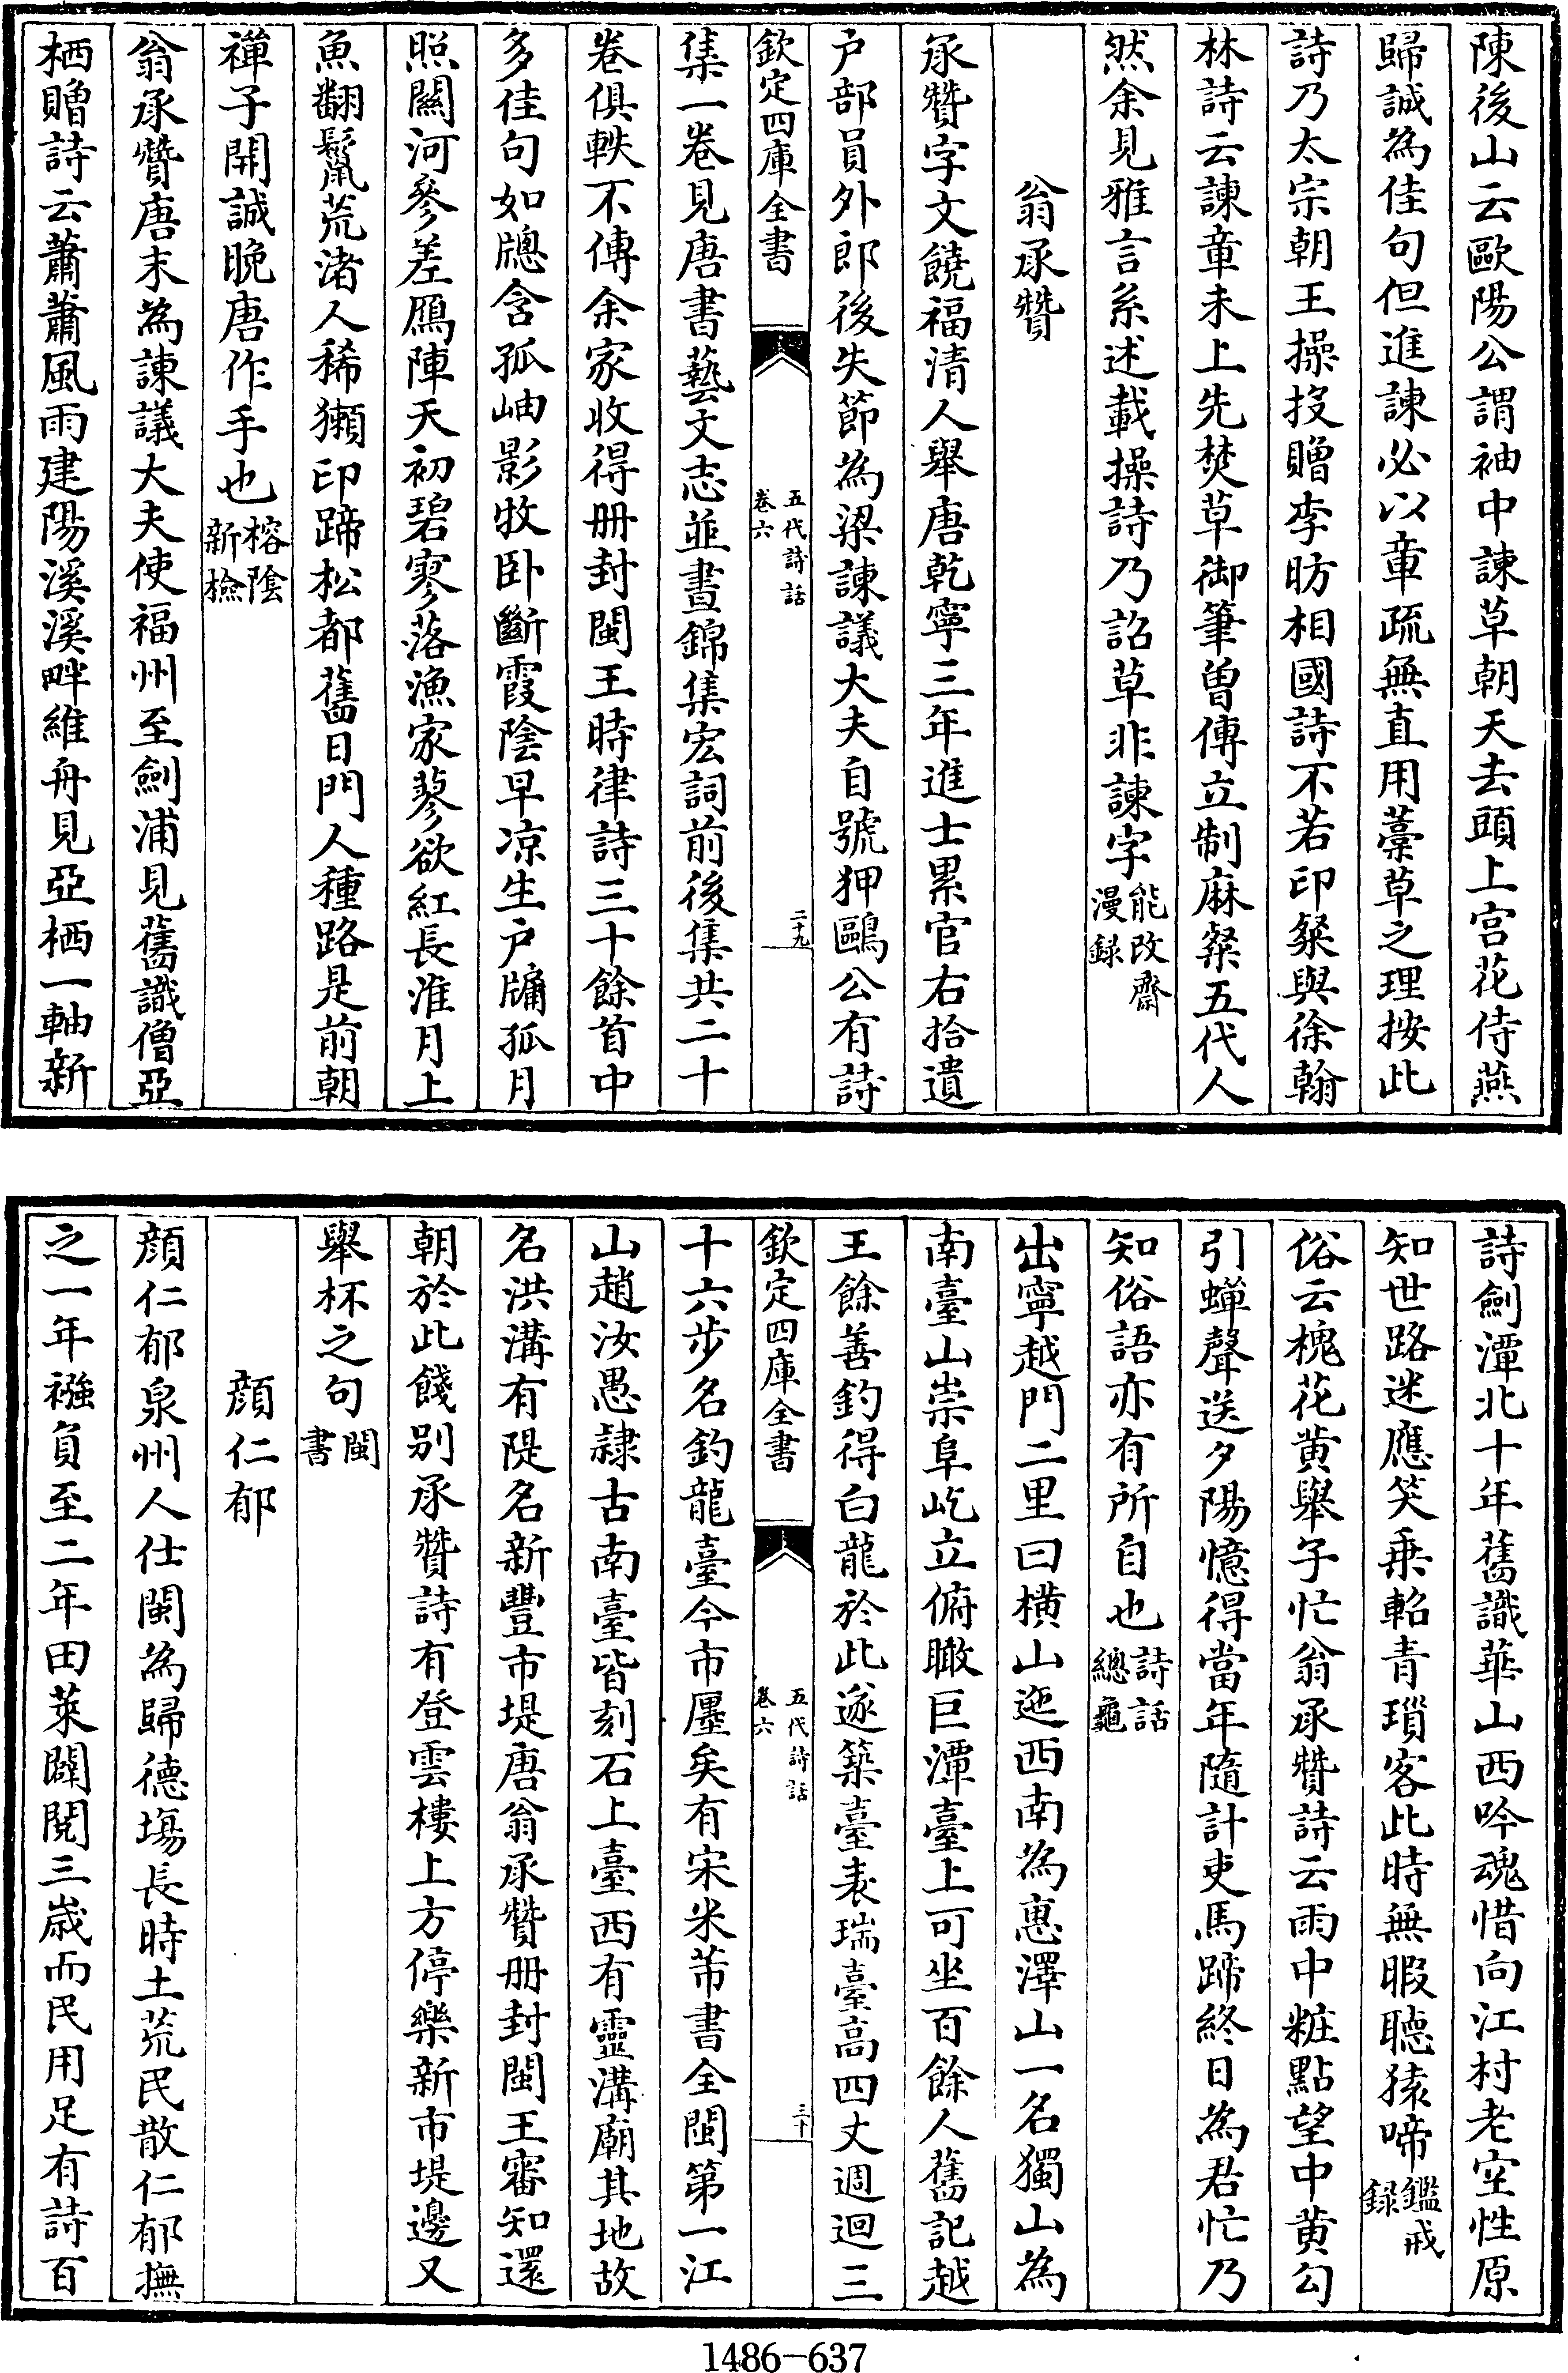 陳後山云歐陽公謂袖中諫草朝天去頭上宮花侍燕
歸誠為佳句但進諫必以章疏無直用藁草之理按此
詩乃太宗朝王操投贈李昉相國詩不若印粲與徐翰
林詩云諫章未上先焚草御筆曽傳立制麻粲五代人
然余見雅言系述載操詩乃詔草非諫字能改齋漫録
翁承贊
承贊字文饒福清人舉唐乾寧三年進士累官右拾遺
户部員外郎後失節為梁諫議大夫自號狎鷗公有詩
欽定四庫全書 五代詩話 卷六 二十九
集一卷見唐書藝文志並晝錦集宏詞前後集共二十
卷俱軼不傳余家收得册封閩王時律詩三十餘首中
多佳句如牎含孤岫影牧卧斷霞陰早凉生户牗孤月
照關河參差鴈陣天初碧寥落漁家蓼欲紅長淮月上
魚翻鬛荒渚人稀獺印蹄松都舊日門人種路是前朝
禪子開誠晚唐作手也榕陰新檢
翁承贊唐末為諫議大夫使福州至劍浦見舊識僧亞
栖贈詩云蕭蕭風雨建陽溪溪畔維舟見亞栖一軸新
詩劍潭北十年舊識華山西吟魂惜向江村老空性原
知世路迷應笑乗軺青瑣客此時無暇聴猿啼鑑戒録
俗云槐花黄舉子忙翁承贊詩云雨中粧點望中黄勾
引蟬聲送夕陽憶得當年隨計吏馬蹄終日為君忙乃
知俗語亦有所自也詩話總龜
出寧越門二里曰橫山迤西南為惠澤山一名獨山為
南臺山崇阜屹立俯瞰巨潭臺上可坐百餘人舊記越
王餘善釣得白龍於此遂築臺表瑞臺高四丈週迴三
欽定四庫全書 五代詩話 卷六 三十
十六步名釣龍臺今市廛矣有宋米芾書全閩第一江
山趙汝愚隷古南臺皆刻石上臺西有靈溝廟其地故
名洪溝有隄名新豐市堤唐翁承贊册封閩王審知還
朝於此餞别承贊詩有登雲樓上方停樂新市堤邊又
舉杯之句閩書
顔仁郁
顔仁郁泉州人仕閩為歸德塲長時土荒民散仁郁撫
之一年襁負至二年田萊闢閲三歲而民用足有詩百
1486-637